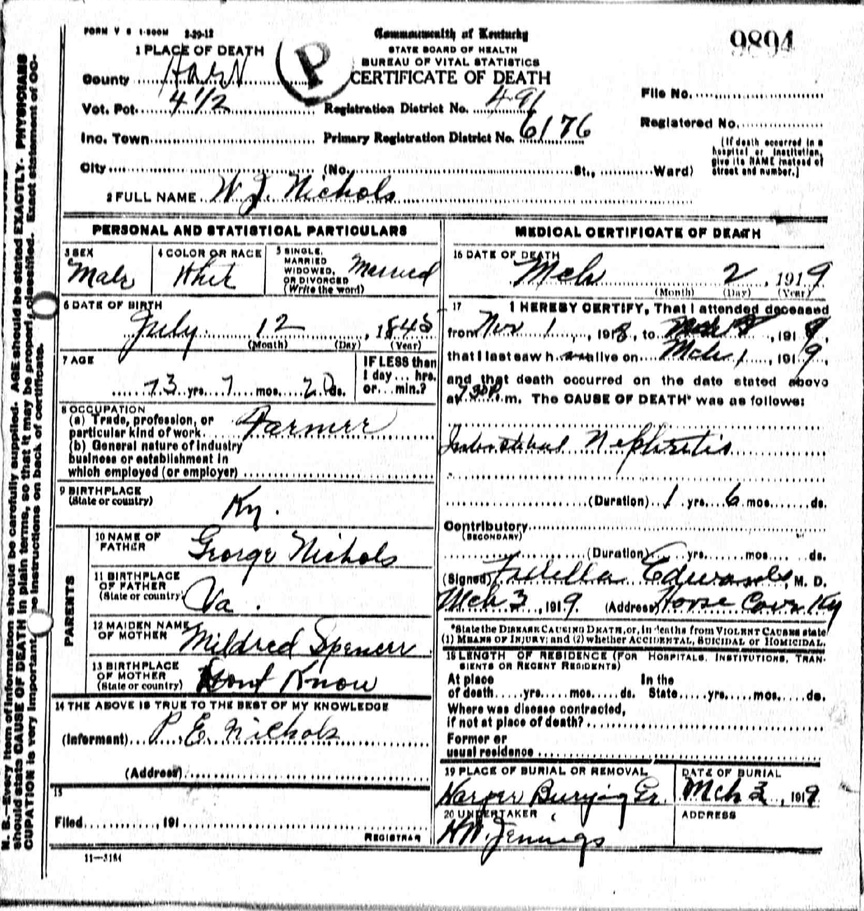 FORM V S 1-500M 2-29-12
Commonwealth of Kentucky
STATE BOARD OF HEALTH
BUREAU OF VITAL STATISTICS
CERTIFICATE OF DEATH
9894
P
1 PLACE OF DEATH
County Hart
Vot. Pct. 4 1/2
Registration District No. 491
File No.
Inc. Town
Primary Registration District No. 6176
Registered No.
City (No. St., Ward)
[If death occurred in a hospital or institution, give its NAME instead of street and number.]
2 FULL NAME W. J. Nichols
PERSONAL AND STATISTICAL PARTICULARS
3 SEX Male
4 COLOR OR RACE Whit
5 SINGLE, MARRIED WIDOWED, OR DIVORCED (Write the word) Married
6 DATE OF BIRTH
July 12, 1845
(Month) (Day) (Year)
7 AGE
73 yrs. 7 mos. 20 ds.
IF LESS than 1 day... hrs. or... min.?
8 OCCUPATION
(a) Trade, profession, or particular kind of work Farmer
(b) General nature of industry business or establishment in which employed (or employer)
9 BIRTHPLACE (State or country) Ky.
PARENTS
10 NAME OF FATHER George Nichols
11 BIRTHPLACE OF FATHER (State or country) Va.
12 MAIDEN NAME OF MOTHER Mildred Spencer
13 BIRTHPLACE OF MOTHER (State or country) Dont Know
14 THE ABOVE IS TRUE TO THE BEST OF MY KNOWLEDGE
(Informant) P. E. Nichols
(Address)
15
Filed, 191
REGISTRAR
11—3184
MEDICAL CERTIFICATE OF DEATH
16 DATE OF DEATH
Mch 2, 1919
(Month) (Day) (Year)
17 I HEREBY CERTIFY, That I attended deceased
from Nov 1, 1918, to Mch, 1919,
that I last saw h alive on Mch 1, 1919
and that death occurred on the date stated above
at m. The CAUSE OF DEATH* was as follows:
Nephritis
(Duration) 1 yrs. 6 mos. ds.
Contributory (SECONDARY)
(Duration) yrs. mos. ds.
(Signed) Edwards M. D.
Mch 3, 1919 (Address) Horse Cave Ky
*State the DISEASE CAUSING DEATH, or, in deaths from VIOLENT CAUSES state
(1) MEANS OF INJURY; and (2) whether ACCIDENTAL, SUICIDAL or HOMICIDAL.
18 LENGTH OF RESIDENCE (FOR HOSPITALS, INSTITUTIONS, TRANSIENTS OR RECENT RESIDENTS)
At place of death yrs. mos. ds. In the State yrs. mos. ds.
Where was disease contracted, if not at place of death?
Former or usual residence
19 PLACE OF BURIAL OR REMOVAL
Harper Burying Gr.
DATE OF BURIAL
Mch 3, 1919
20 UNDERTAKER
H W. Jennings
ADDRESS
N. B.—Every item of information should be carefully supplied. AGE should be stated EXACTLY. PHYSICIANS
should state CAUSE OF DEATH in plain terms, so that it may be properly classified. Exact statement of OC-
CUPATION is very important. See instructions on back of certificate.